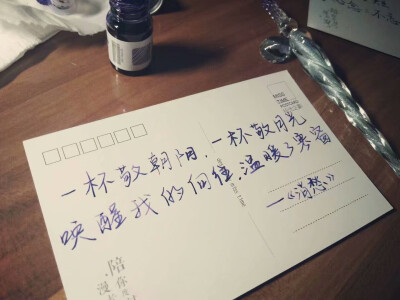 一杯敬朝阳,一杯敬月光
唤醒我的向往,温暖了寒窗
—《消愁》
陪你